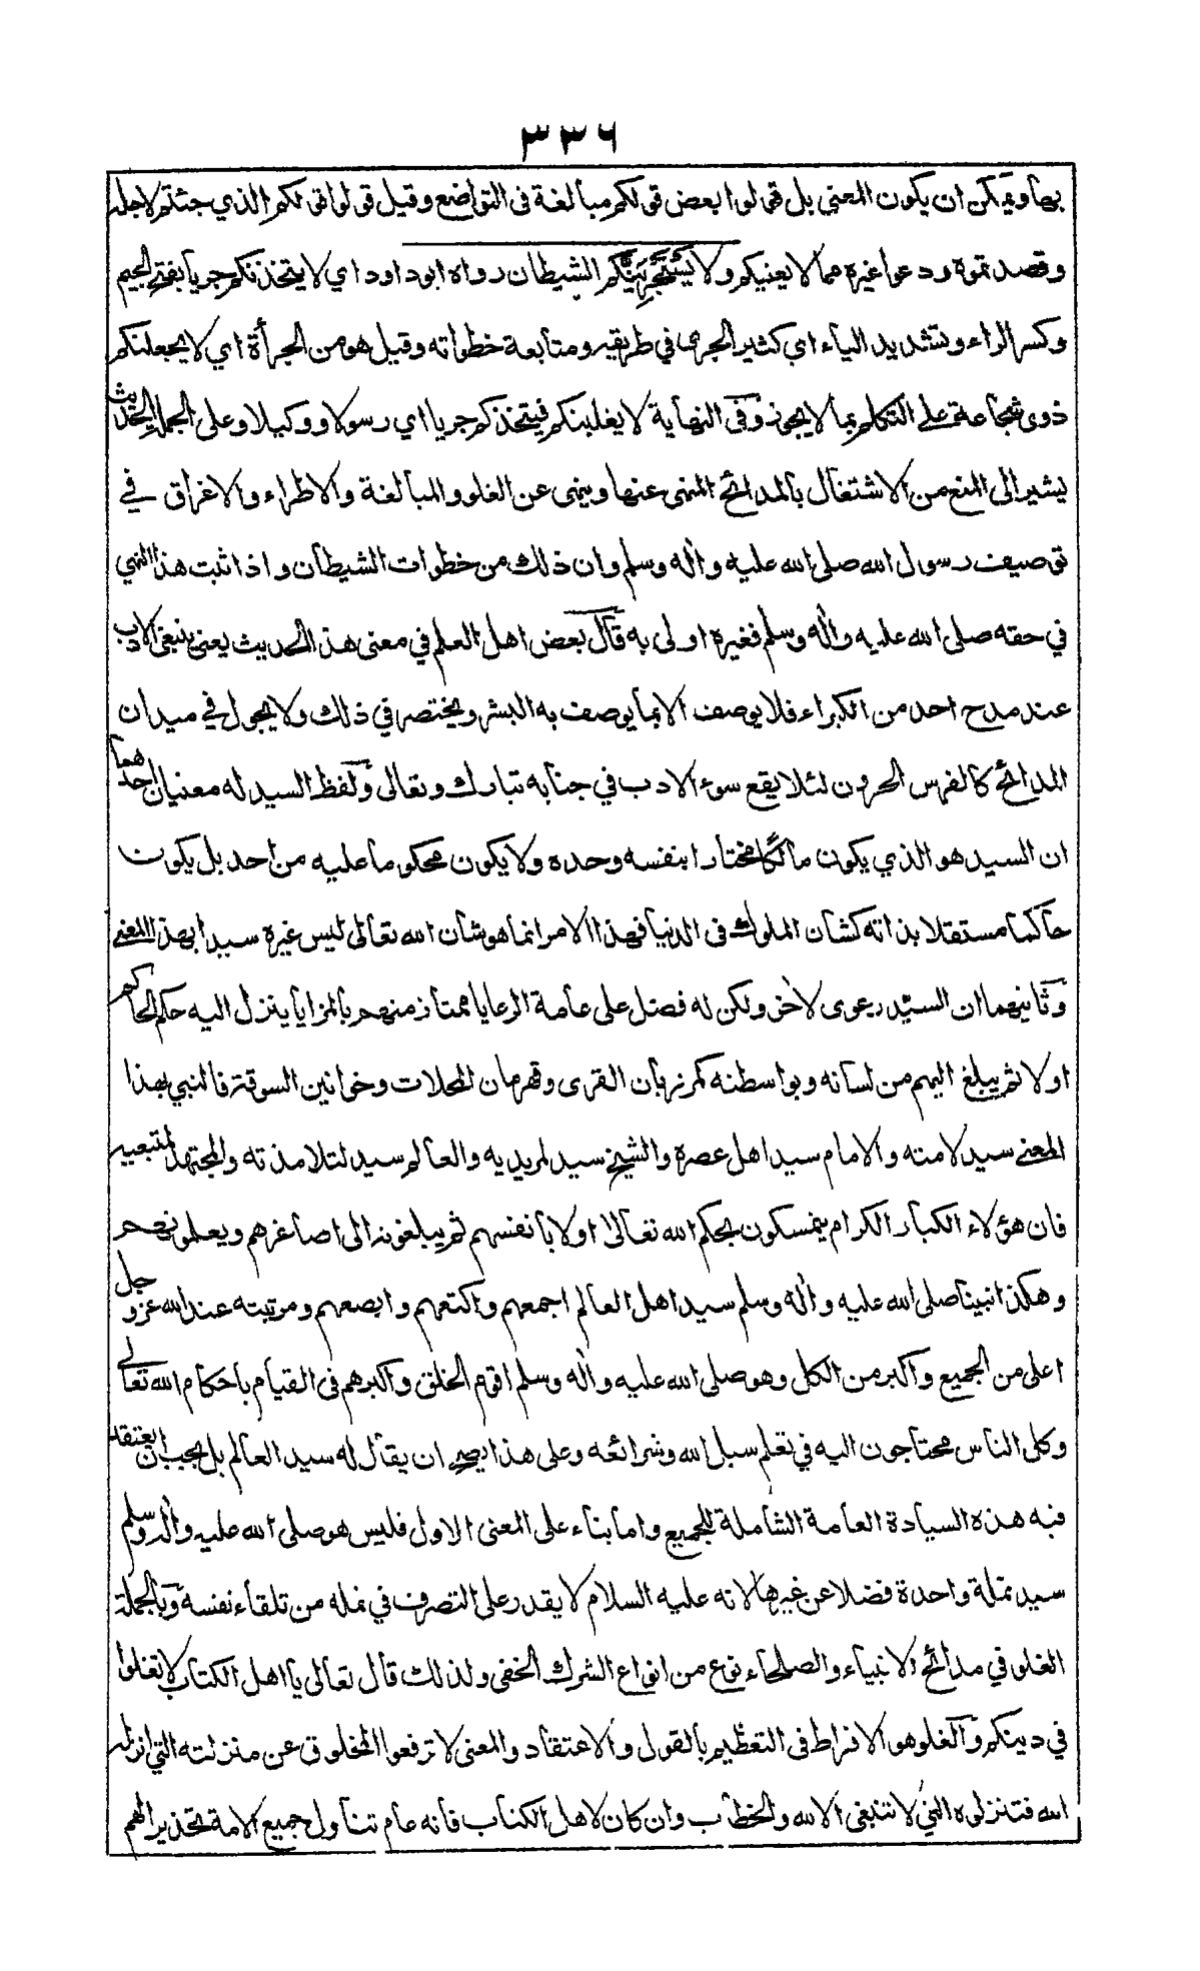 ٣٣٦
بها ويمكن ان يكون المعنى بل قولوا بعض قولكم مبالغة فى التواضع وقيل قولوا قولكم الذي جئتم لاجله
وقصدتموه ودعوا غيره مما لا يعنيكم ولا يستجرينكم الشيطان رواه ابوداود اي لا يتخذنكم جريا بفتح الجيم
وكسر الراء وتشديد الياء اي كثير الجرى في طريقه ومتابعة خطواته وقيل هو من الجرأة اي لا يجعلنكم
ذوى شجاعة على التكلم بما لا يجوز وفى النهاية لا يغلبنكم فيتخذكم جريا اي رسولا ووكيلا وعلى الجملة الحديث
يشير الى المنع من الاشتغال بالمدائح المنهى عنها وينهى عن الغلو والمبالغة والاطراء والاغراق في
توصيف رسول الله صلى الله عليه واٰله وسلم وان ذلك من خطوات الشيطان واذا ثبت هذا النهي
في حقه صلى الله عليه واٰله وسلم فغيره اولى به قال بعض اهل العلم في معنى هذا الحديث يعني ينبغي الادب
عند مدح احد من الكبراء فلا يوصف الا بما يوصف به البشر ويختصر في ذلك ولا يجول في ميدان
المدائح كالفرس الحرون لئلا يقع سوء الادب في جنابه تبارك وتعالى ولفظ السيد له معنيان احدهما
ان السيد هو الذي يكون مالكا مختارا بنفسه وحده ولا يكون محكوما عليه من احد بل يكون
حاكما مستقلا بذاته كشأن الملوك فى الدنيا فهذا الامر انما هو شان الله تعالى ليس غيره سيدا بهذا المعنى
وثانيهما ان السيد رعوى لاخر ولكن له فضل على عامة الرعايا ممتاز منهم بالمزايا ينزل اليه حكم الحاكم
اولا ثم يبلغ اليهم من لسانه وبواسطته كمرزبان القرى وقهرمان المحلات وخوانين السوقة فالنبي بهذا
المعنى سيد لامته والامام سيد اهل عصره والشيخ سيد لمريديه والعالم سيد لتلامذته والمجتهد لمتبعيه
فان هؤلاء الكبار الكرام يتمسكون بحكم الله تعالى اولا بانفسهم ثم يبلغونه الى اصاغرهم ويعلمونهم
وهكذا نبينا صلى الله عليه واٰله وسلم سيد اهل العالم اجمعهم واكتعهم وابصعهم ومرتبته عند الله عز وجل
اعلى من الجميع واكبر من الكل وهو صلى الله عليه واٰله وسلم اقوم الخلق واكبرهم فى القيام باحكام الله تعالى
وكل الناس محتاجون اليه في تعلم سبل الله وشرائعه وعلى هذا يصح ان يقال له سيد العالم بل يجب ان يعتقد
فيه هذه السيادة العامة الشاملة للجميع واما بناء على المعنى الاول فليس هو صلى الله عليه واٰله وسلم
سيد نملة واحدة فضلا عن غيرها لانه عليه السلام لا يقدر على التصرف في نمله من تلقاء نفسه وبالجملة
الغلو في مدائح الانبياء والصلحاء نوع من انواع الشرك الخفى ولذلك قال تعالى يا اهل الكتاب لا تغلوا
في دينكم والغلو هو الافراط فى التعظيم بالقول والاعتقاد والمعنى لا ترفعوا المخلوق عن منزلته التي انزله
الله فتنزلوه التي لا تنبغى الا لله والخطاب وان كان لاهل الكتاب فانه عام تتناول جميع الامة تحذيرا لهم